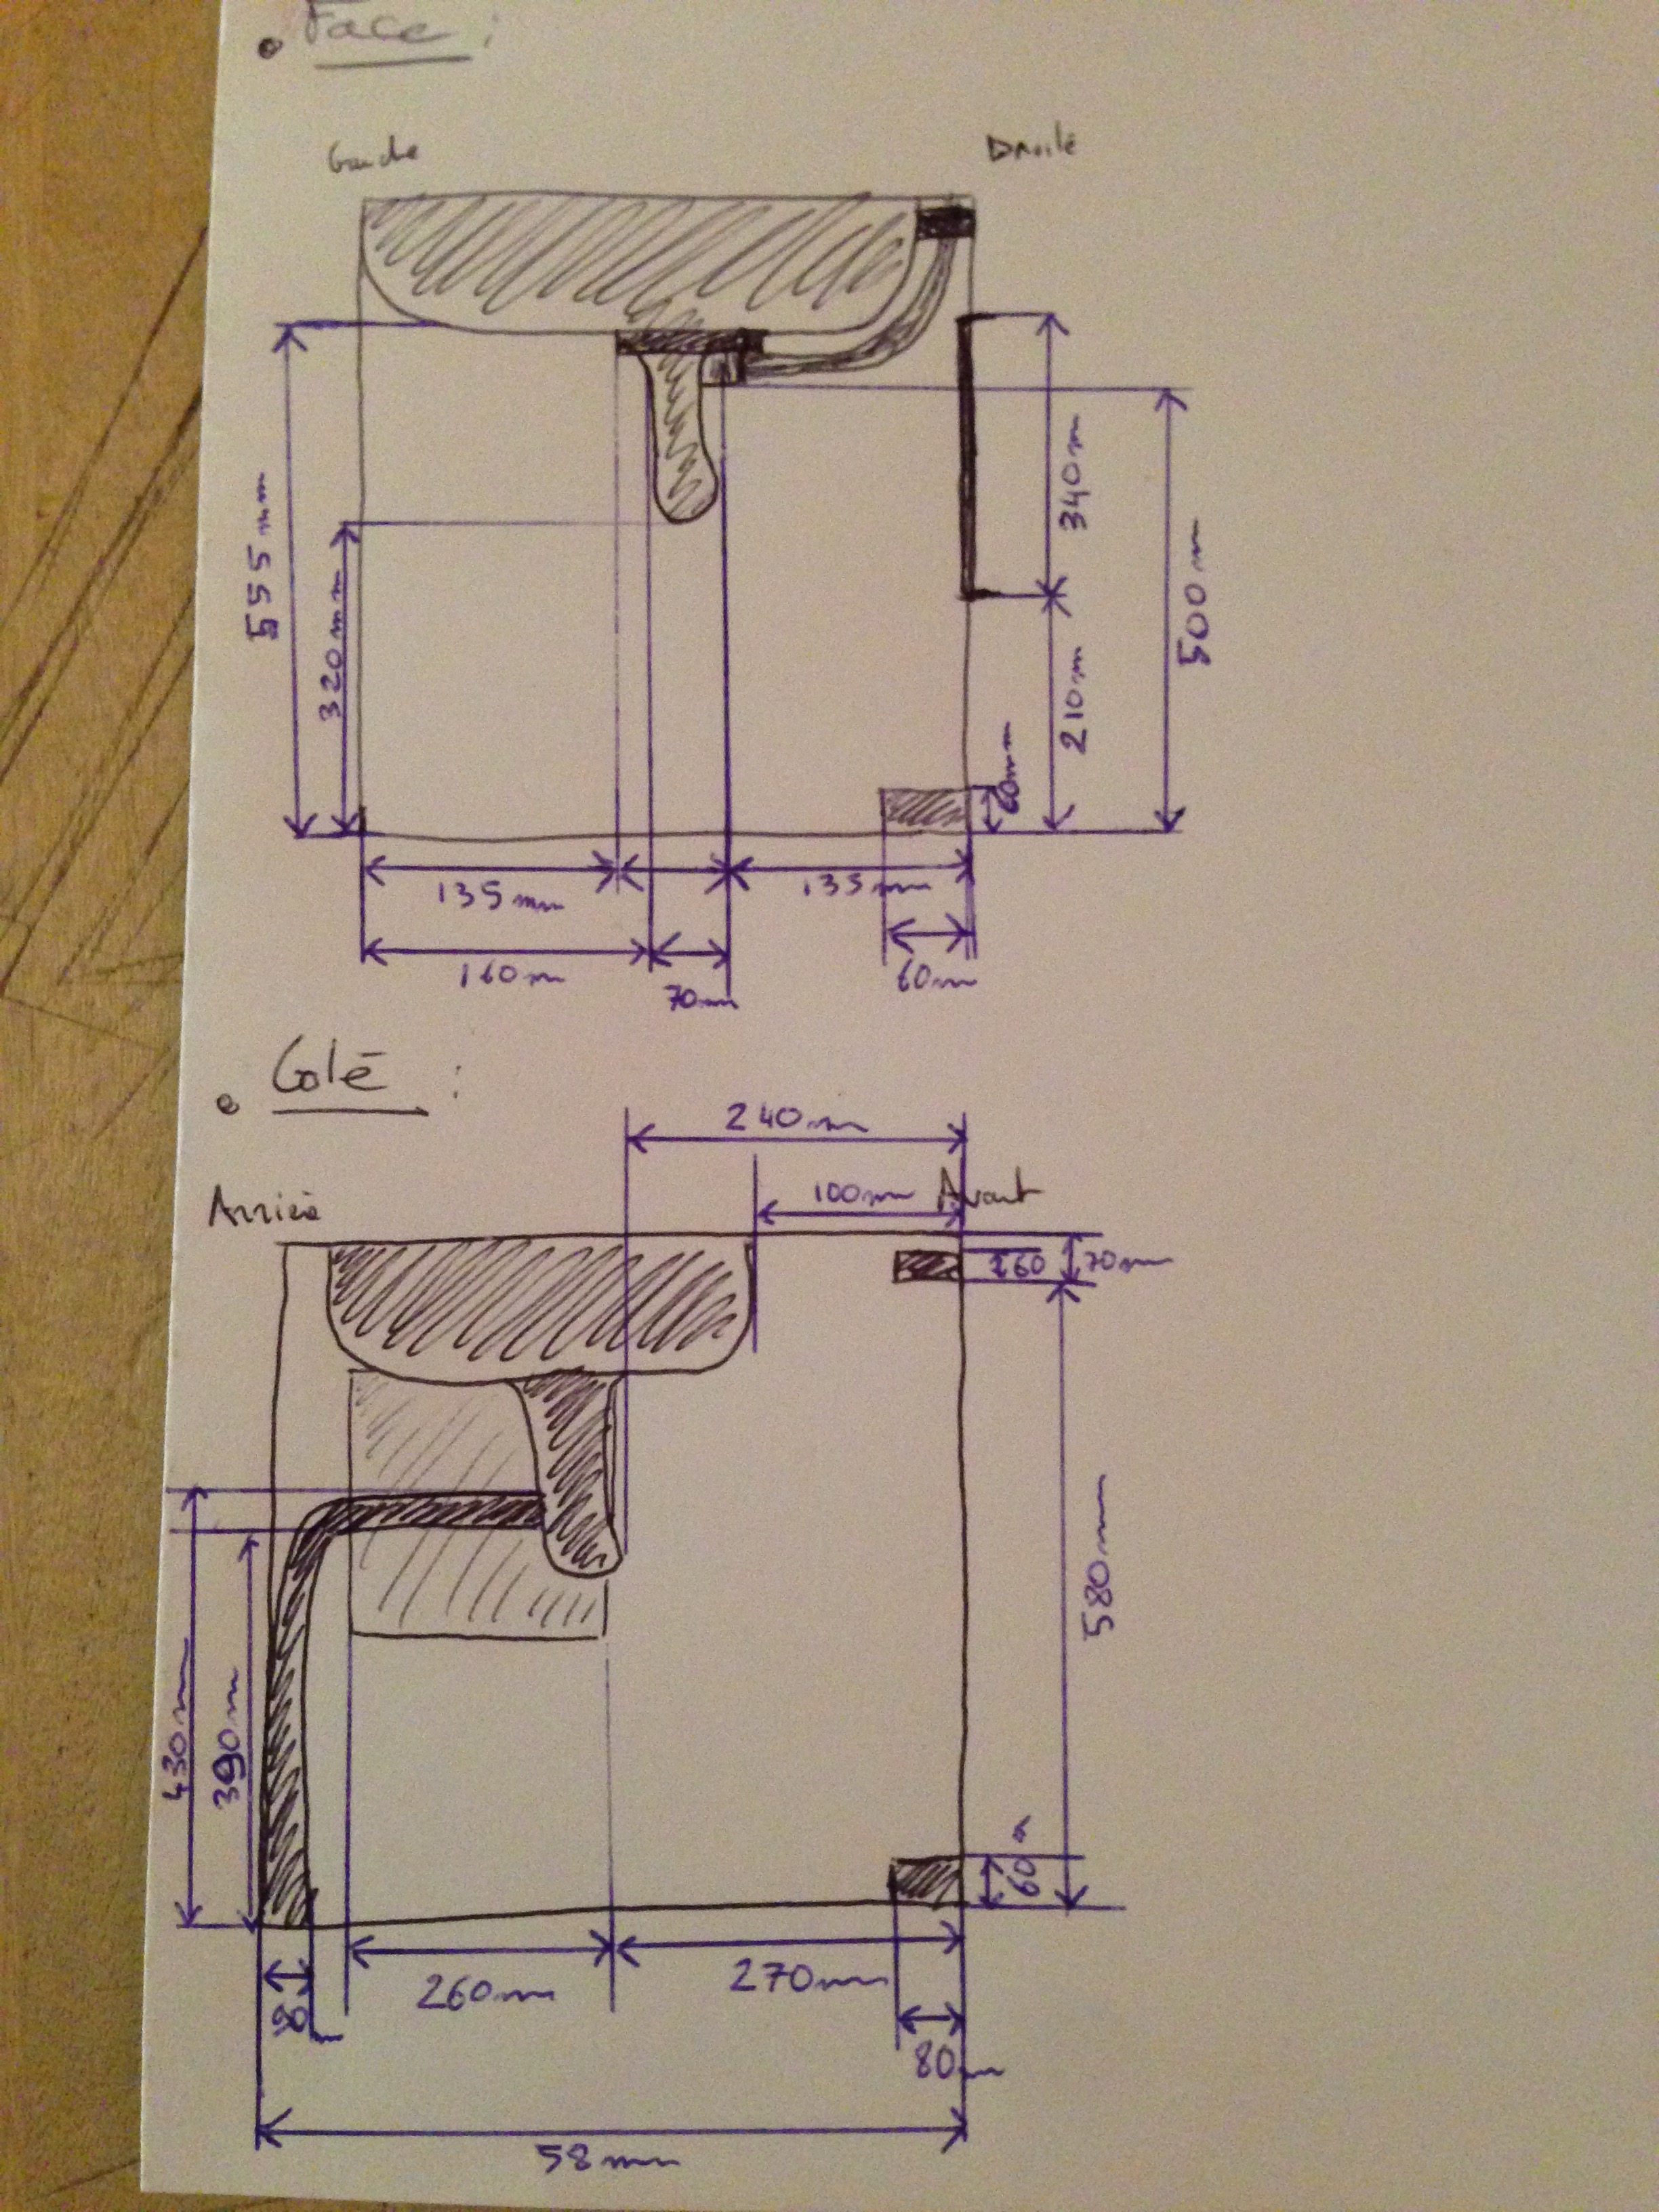 • Face :
Gauche
Droite
555mm
320mm
340m
210m
500m
60mm
135mm
135mm
160m
70mm
60m
• Coté :
240m
100mm
Arrière
Avant
160
70mm
580mm
430m
390m
60m
260mm
270mm
80m
58mm